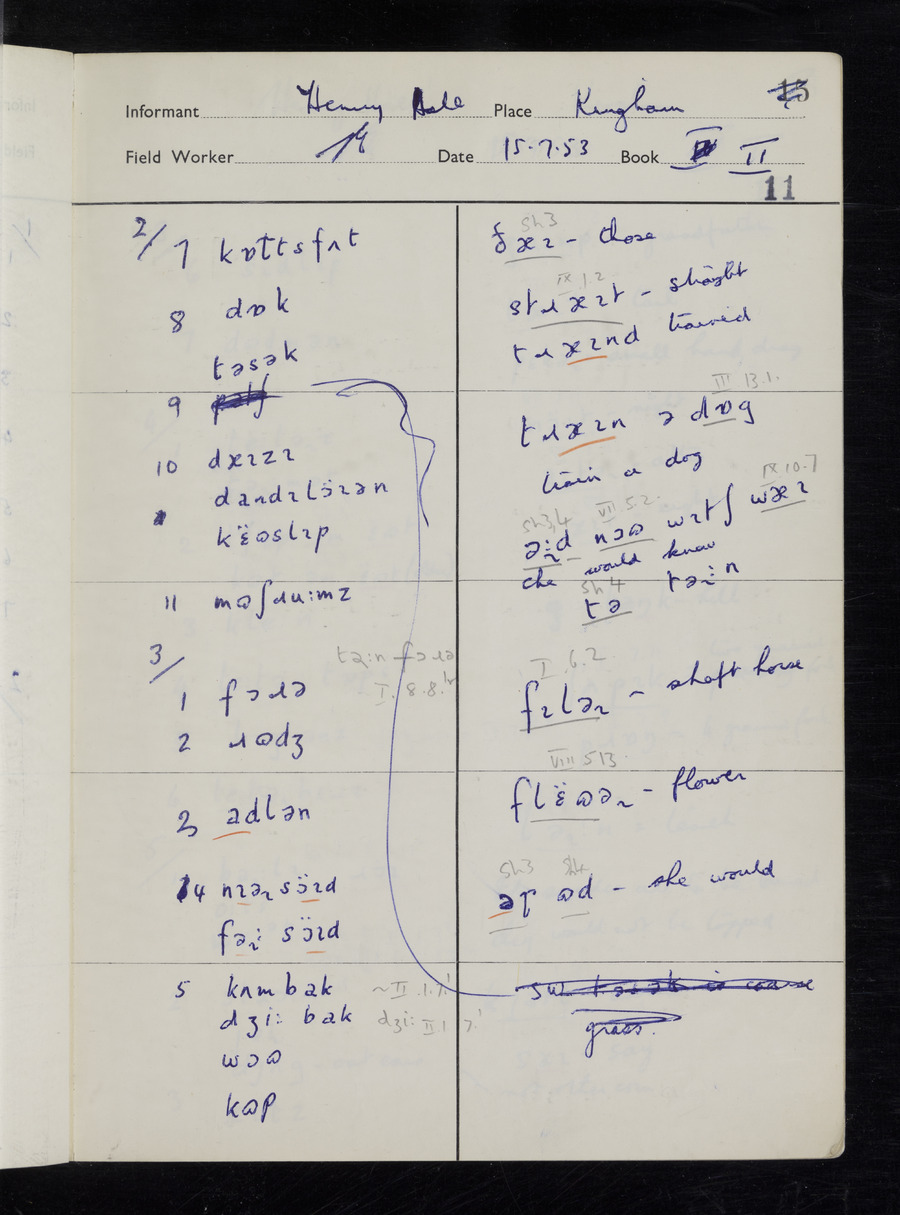 Informant Henry Place Kingham 15
Field Worker Date 15.7.53 Book II
11
2/ 7 kɒltsfʌt
8 dɒk
təsək
9
10 dæɪzɪ
dandɪlɔ̈ɪən
kɛ̈ɷslɪp
11 mɷʃɹuːmz
3/
təɪ:n fɔɹə
I. 8.8.
1 fɔɹə
2 ɹɷdʒ
3 adlən
4 nɪəɻ sɔ̈ɪd
fəɻː sɔ̈ɪd
5 kʌm bak ~II.1.7.
dʒiː bak dʒiː II 1 7.
wɔɷ
kɷp
Sh3
ðæɪ - those
IX 1.2
stɹæɪt - straight
tɹæɪnd trained
III 13.1.
tɹæɪn ə dɒg
train a dog
Sh3,4 VII 5.2. IX 10.7
əɻːd nɔɷ wɪtʃ wæɪ
she would know
Sh 4
tə təɻːn
I. 6.2.
fɪləɻ - shaft horse
VIII 5 13.
flɛ̈ɷəɻ - flower
Sh3 Sh4
əɻ ɷd - she would
is coarse
grass.